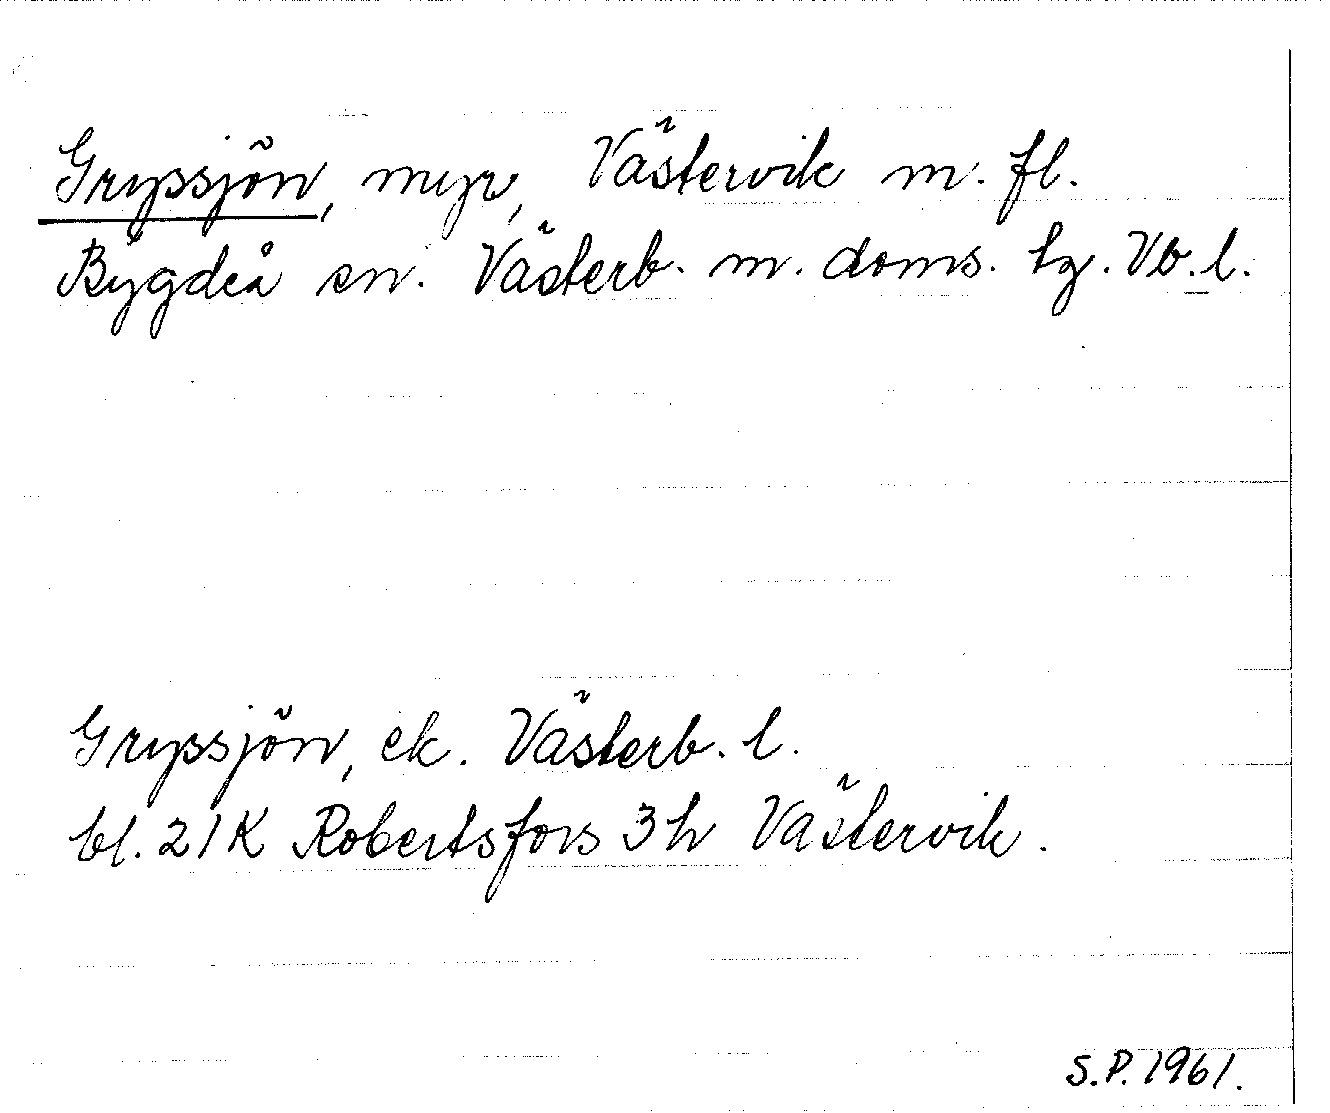 Gryssjön, myr, Västervik m. fl.
Bygdeå sn. Västerb. m. doms. tg. Vb. l.
Gryssjön, ek. Västerb. l.
bl. 21K Robertsfors 3h Västervik.
S.P. 1961.